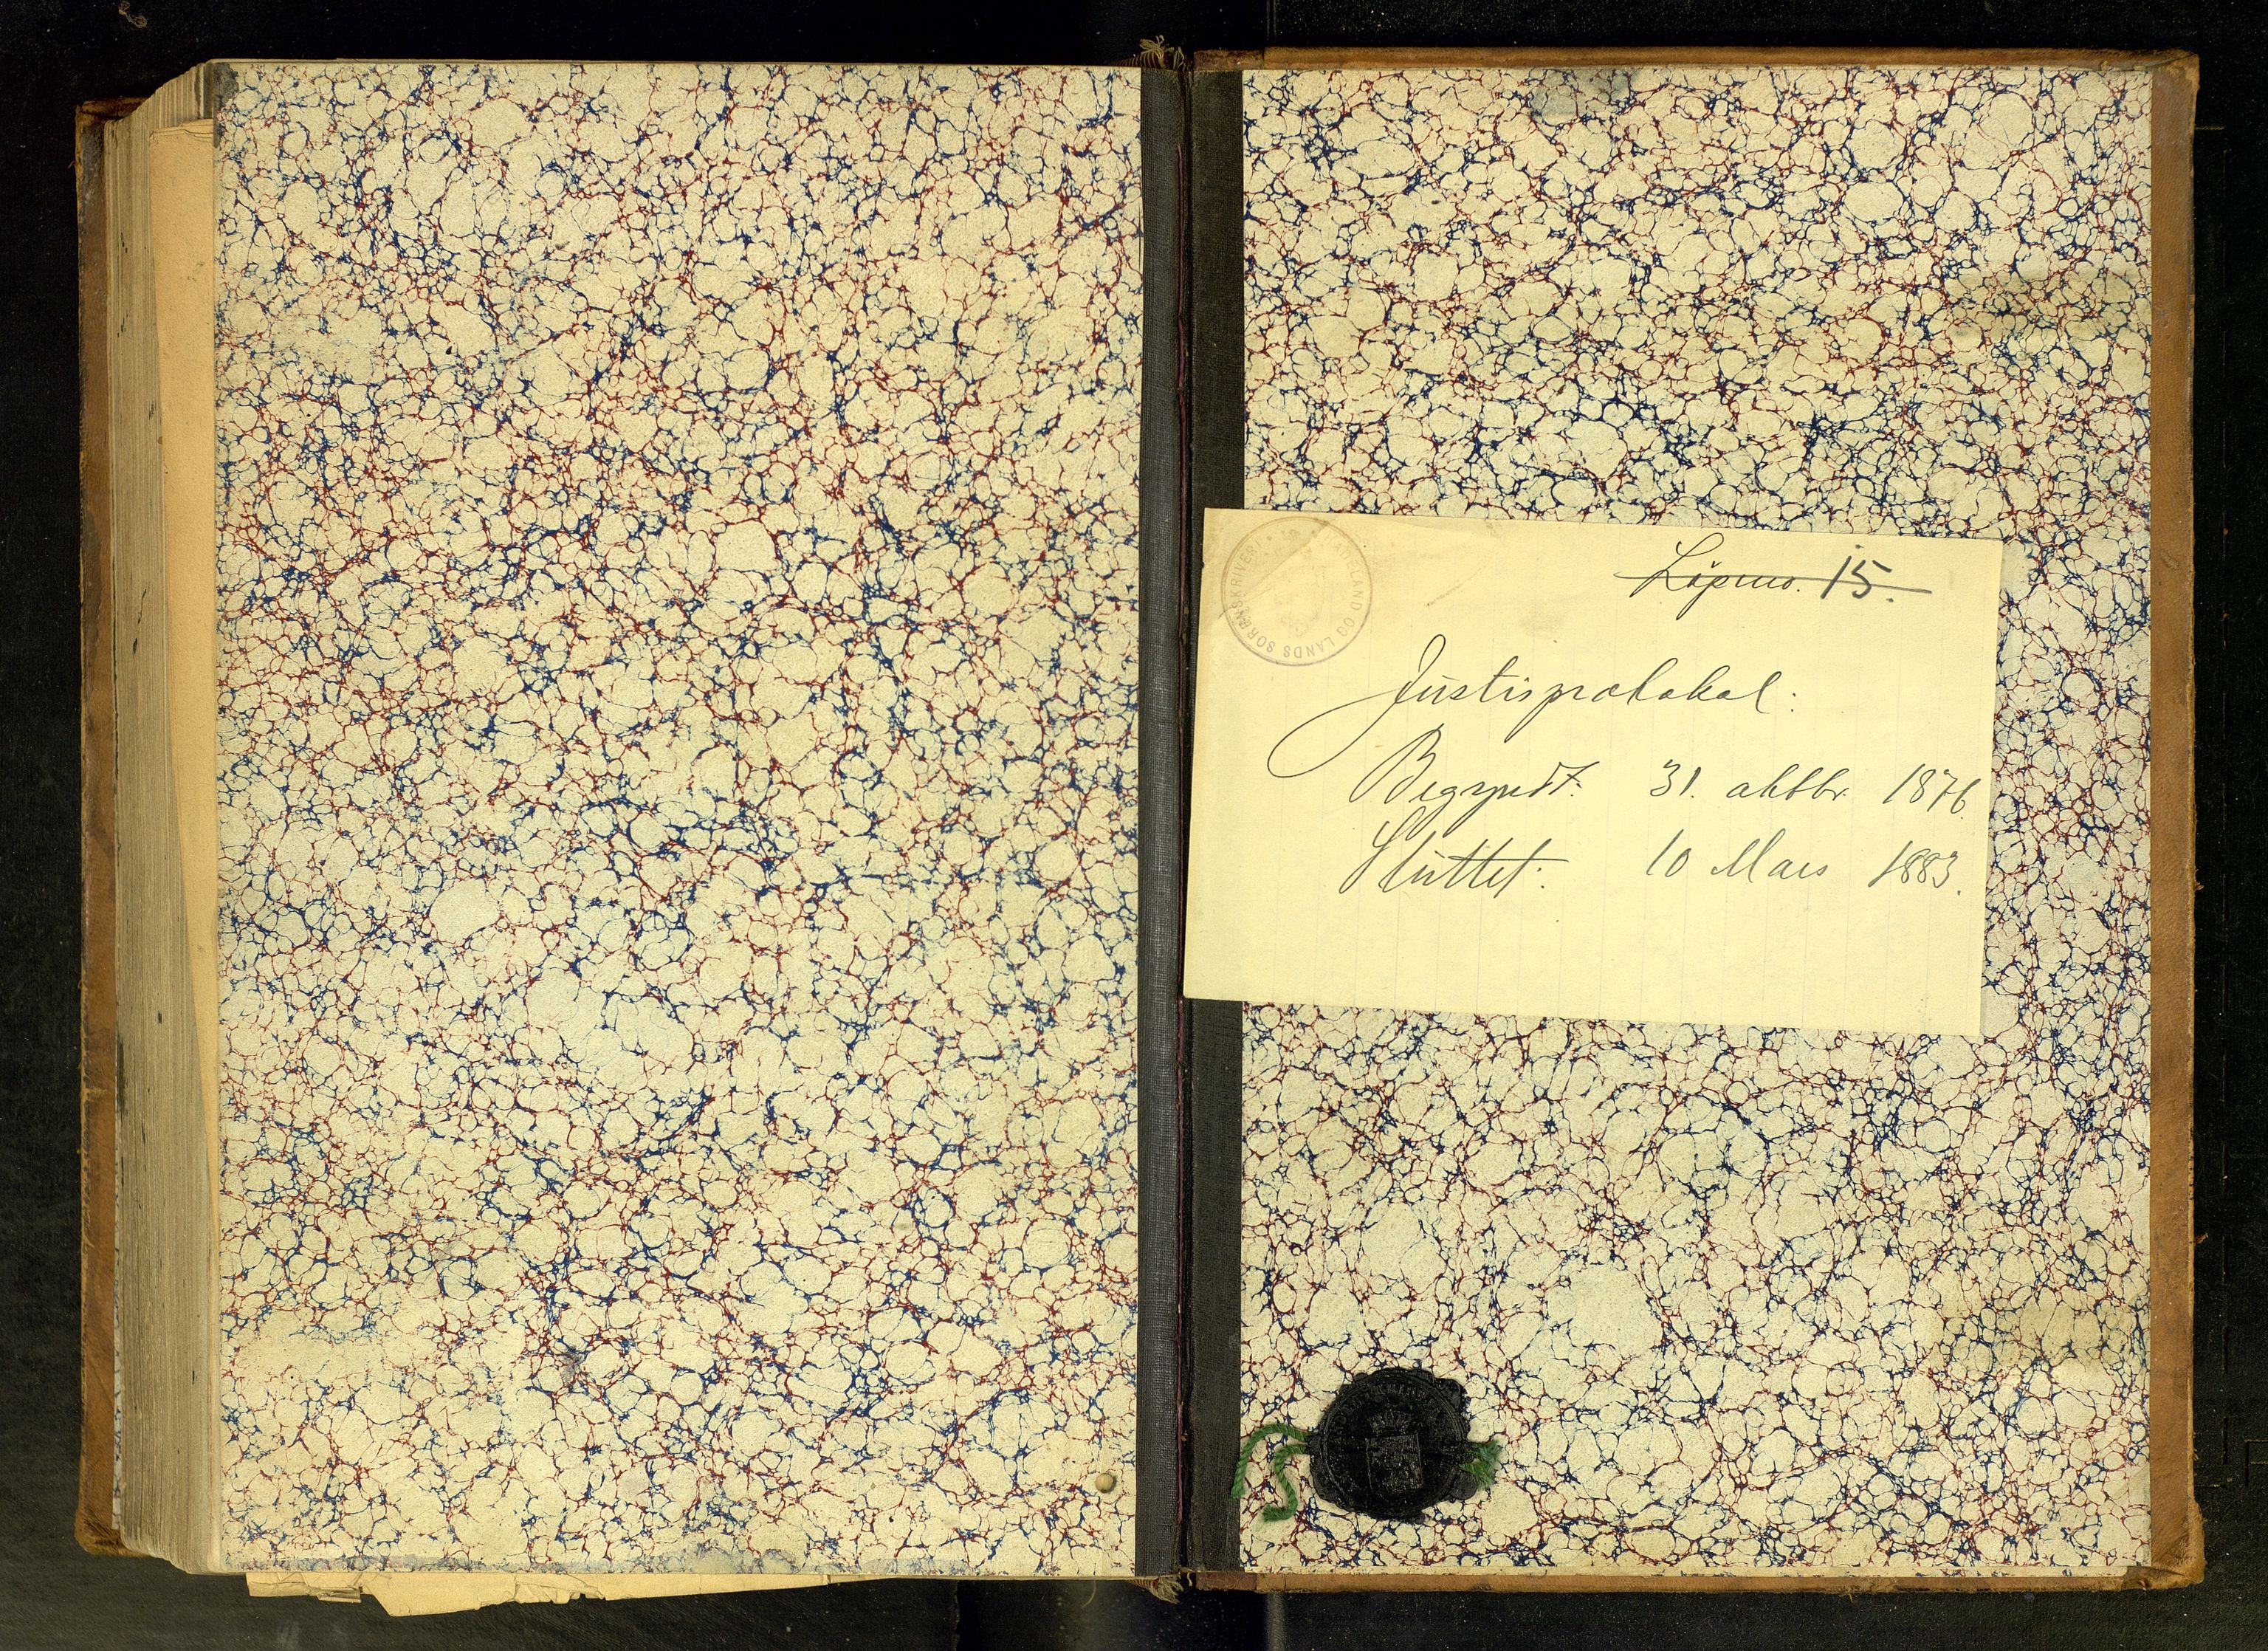 Löpeno. 15.
LAND OG LANDS SORENSKRIVERI
Justisprotokol:
Begyndt: 31. oktbr. 1876.
Sluttet: 10 Mars 1883.